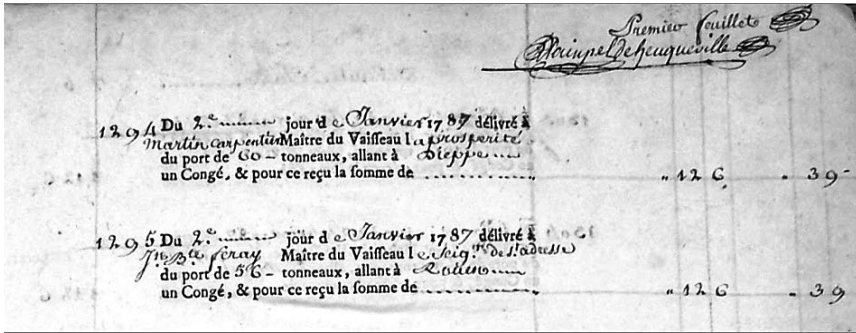 Premier feuillet
Plainpel de heuqueville
1294 Du 2.e jour de Janvier 1787 délivré à
Martin Carpentier Maître du Vaisseau la prosperité
du port de 60 - tonneaux, allant à Dieppe
un Congé, & pour ce reçu la somme de .......... " 12 6 " 39
1295 Du 2.e jour de Janvier 1787 délivré à
Jn Bte feray Maître du Vaisseau le Seigr. de St. adresse
du port de 56 - tonneaux, allant à Rouen
un Congé, & pour ce reçu la somme de .......... " 12 6 " 39